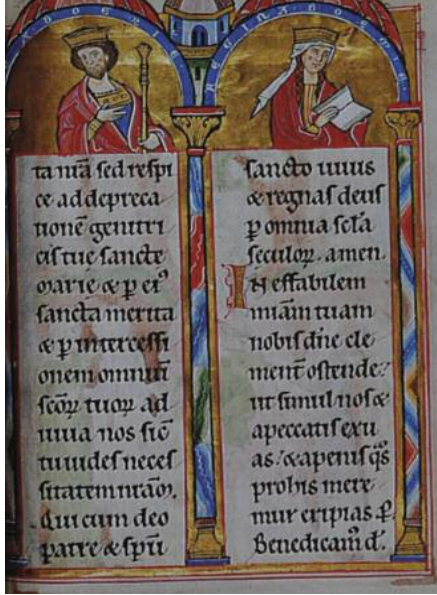 REGINA BOEMIE
ta mīa sed respi
ce ad depreca
tionē genitri
cis tue sancte
marie & ꝑ eiꝰ
sancta merita
& ꝑ intercessi
onem omniū
scōꝝ tuoꝝ ad
iuua nos sic̄
tu uides neces
sitatem nr̄am.
Qui cum deo
patre & spū
sancto uiuis
& regnas deus
ꝑ omnia scl̄a
seculoꝝ. amen.
INeffabilem
miām tuam
nobis dn̄e cle
ment̄ ostende:
ut simul nos &
a peccatis exu
as: & a penis q̄s
pro his mere
mur eripias ꝑ.
Benedicam᷒ d.